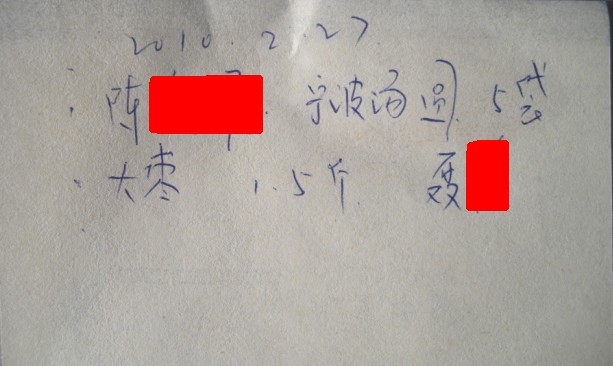 2010.2.27
陈 宁波汤圆 5袋
大枣 1.5斤 聂